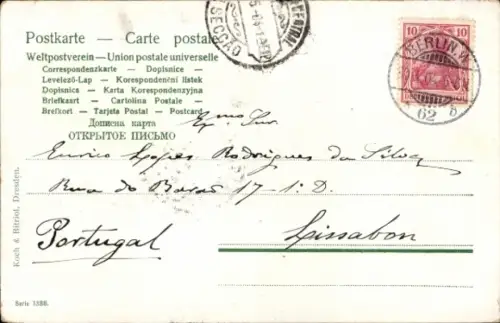 Postkarte — Carte postale
Weltpostverein — Union postale universelle
Correspondenzkarte — Dopisnice —
Levelező-Lap — Korespondenční listek
Dopisnica — Karta Korespondenzyjna
Briefkaart — Cartolina Postale —
Brefkort — Tarjeta Postal — Postcard
Дописна карта
ОТКРЫТОЕ ПИСЬМО
SECÇÃO CENTRAL
10 10
BERLIN W
62 b
Exmo Snr.
Enrico Lopes Rodrigues da Silva
Rua do Barão 17-1º D.
Portugal Lissabon
Koch & Bitriol, Dresden.
Serie 1388.